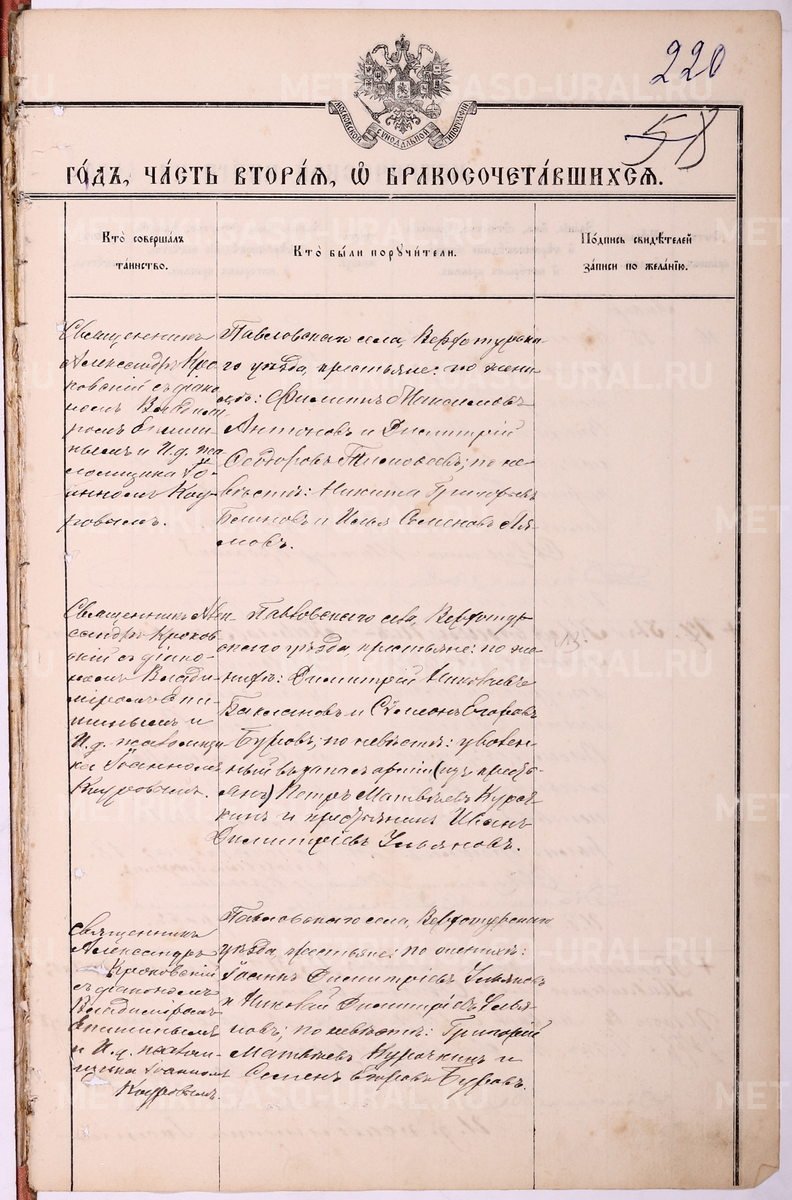 220
58
МОСКОВСКОЙ СѴНОДАЛЬНОЙ ТИПОГРАФІИ
ГО́ДЪ, ЧА́СТЬ ВТОРА́Я, Ѽ БРАКОСОЧЕТА́ВШИХСЯ.
Кто̀ соверша́лъ
та́инство.
Кто̀ бы́ли поручи́тели.
По́дпись свидѣ́телей
за́писи по жела́нію.
Священникъ
Александръ Кро-
ковскій съ діако-
номъ Владими-
ромъ
нымъ и И. д. пса-
ломщика Іо-
анномъ Кау-
ровымъ.
Павловскаго села, Верхотурска-
го уѣзда, крестьяне: по жени-
ху: Филиппъ Максимовъ
Антоновъ и Димитрій
Ѳеодоровъ по не-
вѣстѣ: Никита Григорьевъ
и Илья Семеновъ
Священникъ Алек-
сандръ Кроков-
скій съ діако-
номъ Влади-
міромъ Епи-
шинымъ и
И. д. псаломщи-
ка Іоанномъ
Кауровымъ.
Павловскаго села, Верхотур-
скаго уѣзда, крестьяне: по же-
нихѣ: Димитрій
Баклановъ и Сѷмеонъ Егоровъ
Буровъ; по невѣстѣ: уволен-
ный въ запасъ арміи (изъ кресть-
янъ) Петръ Матвѣевъ Куроч-
кинъ и крестьянинъ Иванъ
Димитріевъ Ульяновъ.
Священникъ
Александръ
Кроковскій
съ діакономъ
Владиміромъ
Епишинымъ
и И. д. псалом-
щика Іоанномъ
Кауровымъ.
Павловскаго села, Верхотурскаго
уѣзда, крестьяне: по женихѣ:
Іоаннъ Димитріевъ Ульяновъ
и Николай Димитріевъ Улья-
новъ; по невѣстѣ: Григорій
Матвѣевъ Курочкинъ и
Семенъ Егоровъ Буровъ.
METRIKI.GASO-URAL.RU